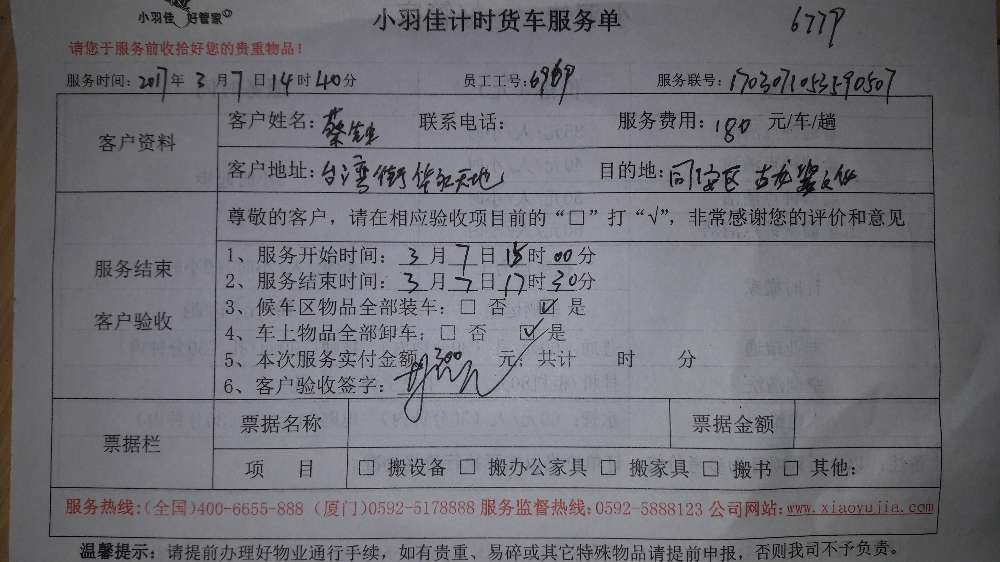 小羽佳 好管家
小羽佳计时货车服务单
677P
请您于服务前收拾好您的贵重物品！
服务时间：2017年3月7日14时40分 员工工号：696P 服务联号：1703071053590507
客户资料
客户姓名：蔡先生 联系电话： 服务费用：180 元/车/趟
客户地址：台湾街华永天地 目的地：同安区
尊敬的客户，请在相应验收项目前的“□”打“√”，非常感谢您的评价和意见
服务结束
客户验收
1、服务开始时间：3月7日15时00分
2、服务结束时间：3月7日17时30分
3、候车区物品全部装车：□ 否 ☑ 是
4、车上物品全部卸车：□ 否 ☑ 是
5、本次服务实付金额300元；共计 时 分
6、客户验收签字：
票据栏
票据名称 票据金额
项 目 □ 搬设备 □ 搬办公家具 □ 搬家具 □ 搬书 □ 其他：
服务热线：(全国)400-6655-888 (厦门)0592-5178888 服务监督热线：0592-5888123 公司网站：www.xiaoyujia.com
温馨提示：请提前办理好物业通行手续，如有贵重、易碎或其它特殊物品请提前申报，否则我司不予负责。